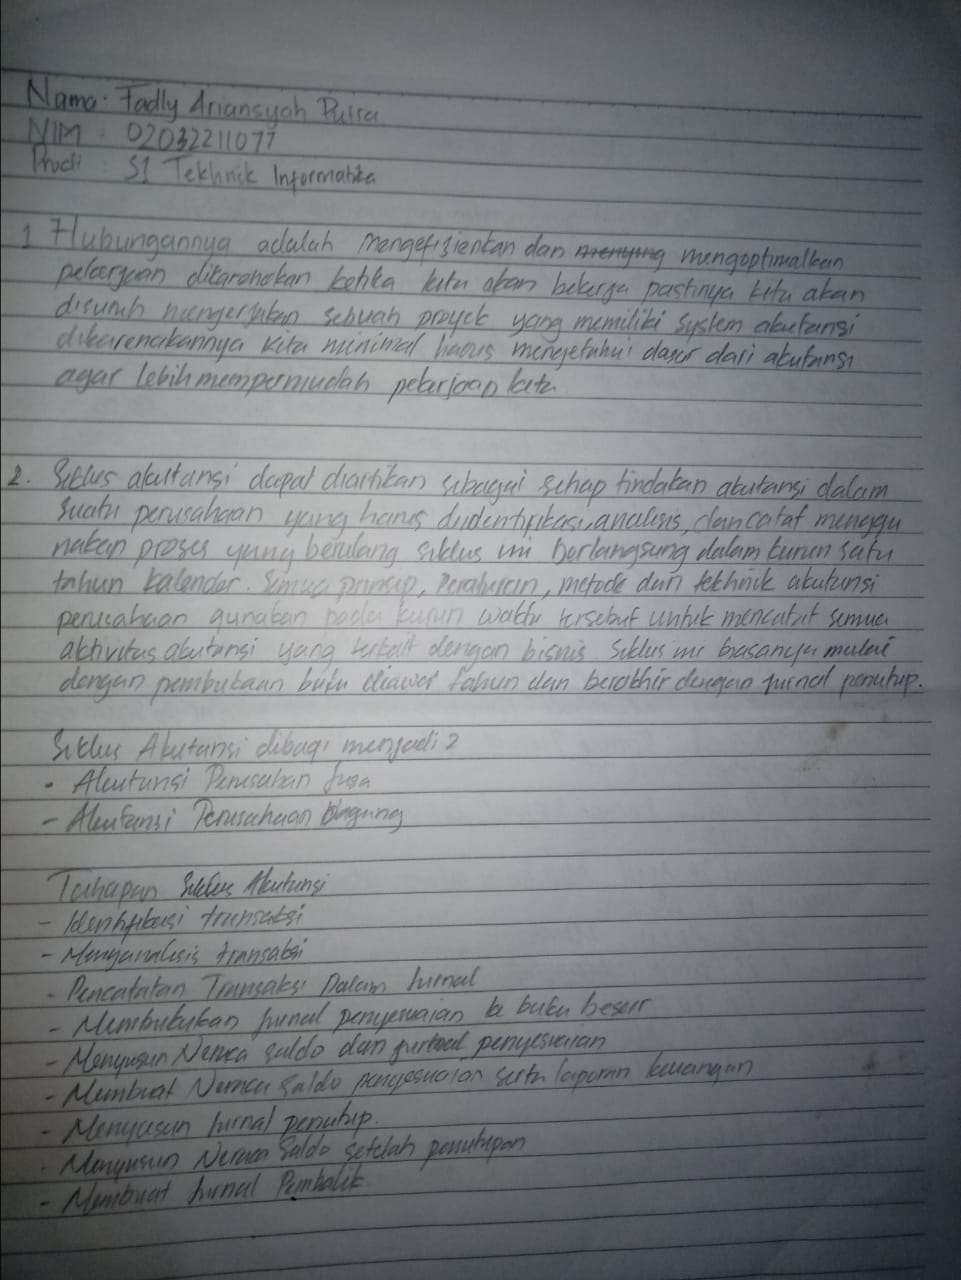 Nama : Fadly Ariansyah Putra
NIM : 02032211077
Prodi : S1 Tekhnik Informatika
1 Hubungannya adalah mengefizienkan dan mengoptimalkan
pekerjaan dikarenakan ketika kita akan bekerja pastinya kita akan
disuruh mengerjakan sebuah proyek yang memiliki system akutansi
dikarenakannya kita minimal harus mengetahui dasar dari akutansi
agar lebih mempermudah pekerjaan kita
2. Siklus akutansi dapat diartikan sebagai setiap tindakan akutansi dalam
suatu perusahaan yang harus diidentifikasi, analisis, dan catat menggu
nakan proses yang berulang siklus ini berlangsung dalam kurun satu
tahun kalender. Semua prinsip, Peraturan, metode dan tekhnik akutansi
perusahaan gunakan pada kurun waktu tersebut untuk mencatat semua
aktivitas akutansi yang terkait dengan bisnis Siklus ini biasanya mulai
dengan pembukaan buku diawal tahun dan berakhir dengan jurnal penutup.
Siklus Akutansi dibagi menjadi 2
- Akutansi Perusahan Jasa
- Akutansi Perusahaan
Tahapan Siklus Akutansi
- Identifikasi transaksi
- Menganalisis transaksi
- Pencatatan Transaksi Dalam Jurnal
- Membukukan Jurnal penyesuaian ke buku besar
- Menyusun Neraca saldo dan jurnal penyesuaian
- Membuat Neraca Saldo penyesuaian serta laporan keuangan
- Menyusun Jurnal penutup.
- Menyusun Neraca Saldo setelah penutupan
- Membuat Jurnal Pembalik